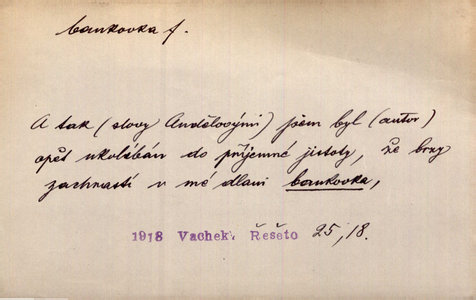 bankovka f.
A tak (slovy Andělovými) jsem byl (autor)
opět ukolébán do příjemné jistoty, že brzy
zachrastí v mé dlani bankovka,
1918 Vachek: Řešeto 25, 18.